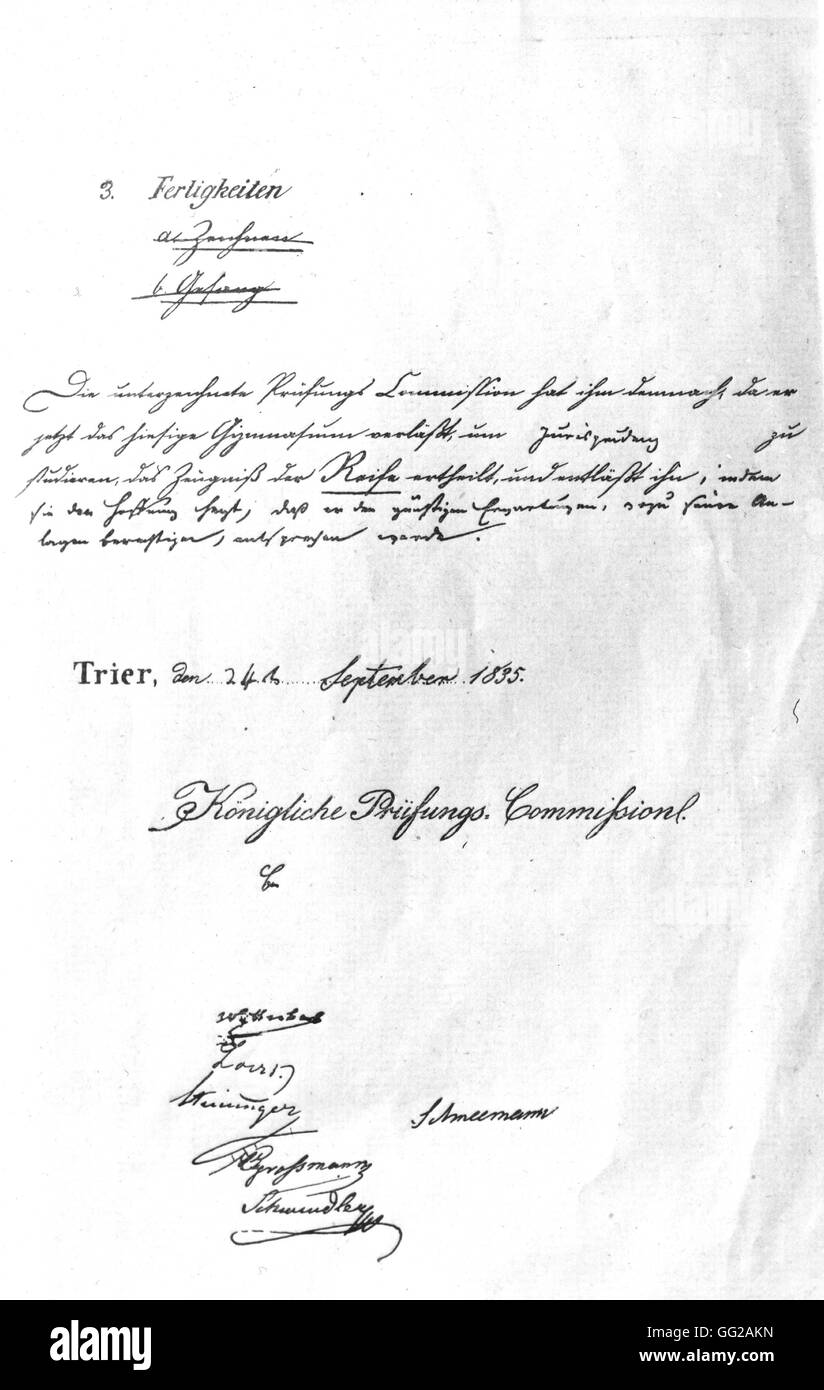 3. Fertigkeiten
a. Zeichnen
b. Gesang
Die unterzeichnete Prüfungs Commission hat ihm demnach, da er
jetzt das hiesige Gymnasium verläßt, um Jurisprudenz zu
studieren, das Zeugniß der Reife ertheilt, und entläßt ihn, indem
sie den Hoffnung hegt, daß er den günstigen Erwartungen, wozu seine An-
lagen berechtigen, entsprechen werde.
Trier, den 24t September 1835.
Königliche Prüfungs-Commission.
Wyttenbach
Loers.
Steininger
Schneemann
Grossmann
Schwendler
alamy
alamy
alamy
alamy
Image ID: GG2AKN
www.alamy.com